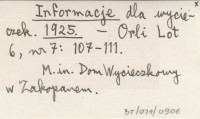 Informacje dla wycie-
czek. 1925. — Orli Lot
6, nr 7: 107-111.
M. in. Dom Wycieczkowy
w Zakopanem.
BT/071/0906